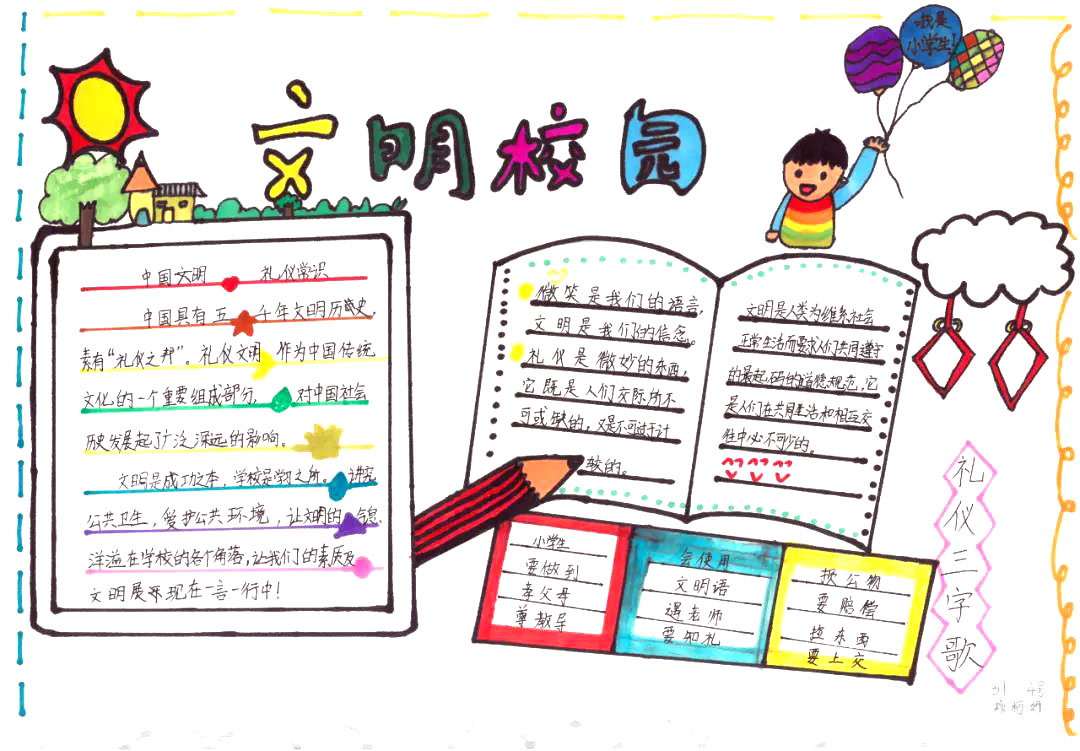 文明校园
我是
小学生!
中国文明 礼仪常识
中国具有五千年文明历史,
素有“礼仪之邦”。礼仪文明作为中国传统
文化的一个重要组成部分,对中国社会
历史发展起了广泛深远的影响。
文明是成功之本,学校是学习之所。讲究
公共卫生,爱护公共环境,让文明的气息
洋溢在学校的各个角落,让我们的素质及
文明展示现在一言一行中!
微笑是我们的语言,
文明是我们的信念。
礼仪是微妙的东西,
它既是人们交际所不
可或缺的,又是不可过于计
较的。
文明是人类为维系社会
正常生活而要求人们共同遵守
的最起码的道德规范,它
是人们在共同生活和相互交
往中必不可少的。
小学生
要做到
孝父母
尊教导
会使用
文明语
遇老师
要知礼
损公物
要赔偿
捡东西
要上交
礼仪三字歌
4号